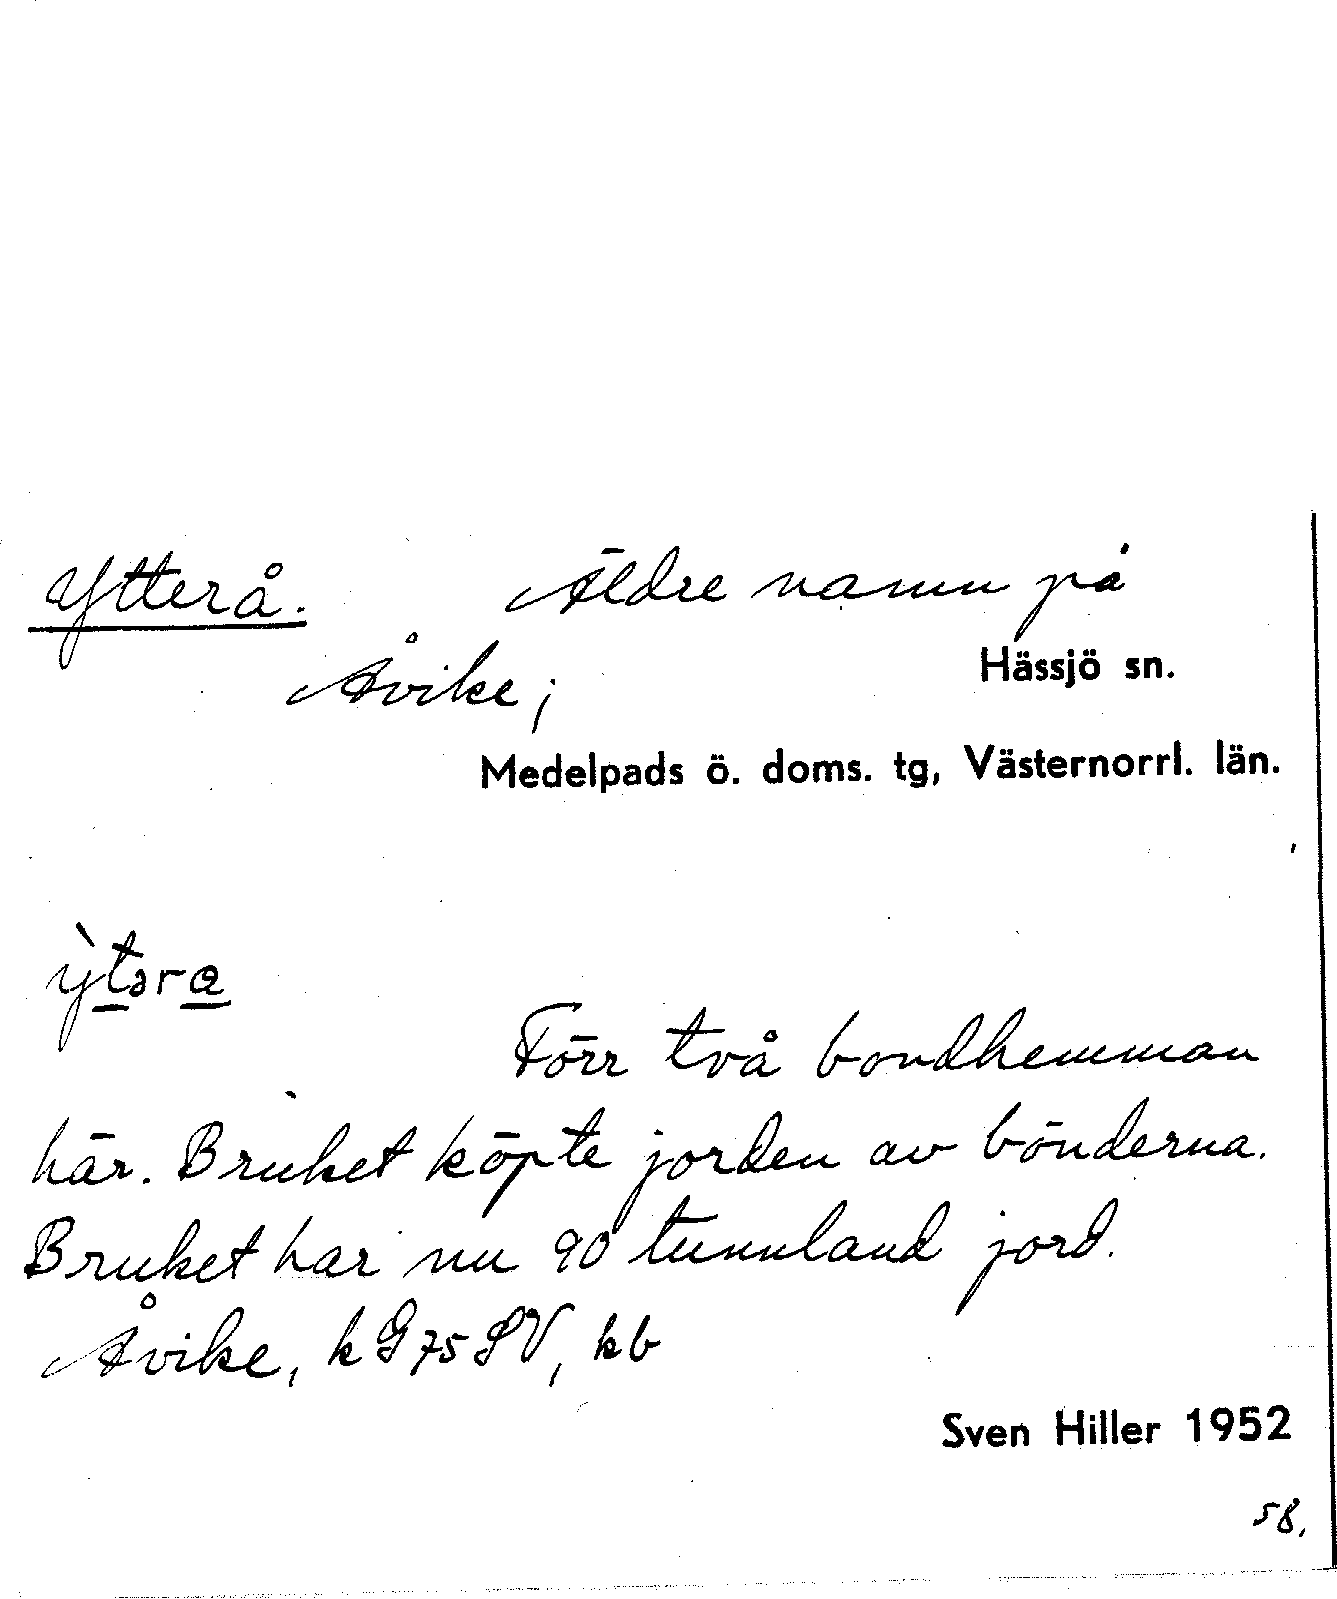 Ytterå. Äldre namn på
Åvike; Hässjö sn.
Medelpads ö. doms. tg, Västernorrl. län.
ỳtəra
Förr två bondhemman
här. Bruket köpte jorden av bönderna.
Bruket har nu 90 tunnland jord.
Åvike, k G75 SV, kb
Sven Hiller 1952
58.